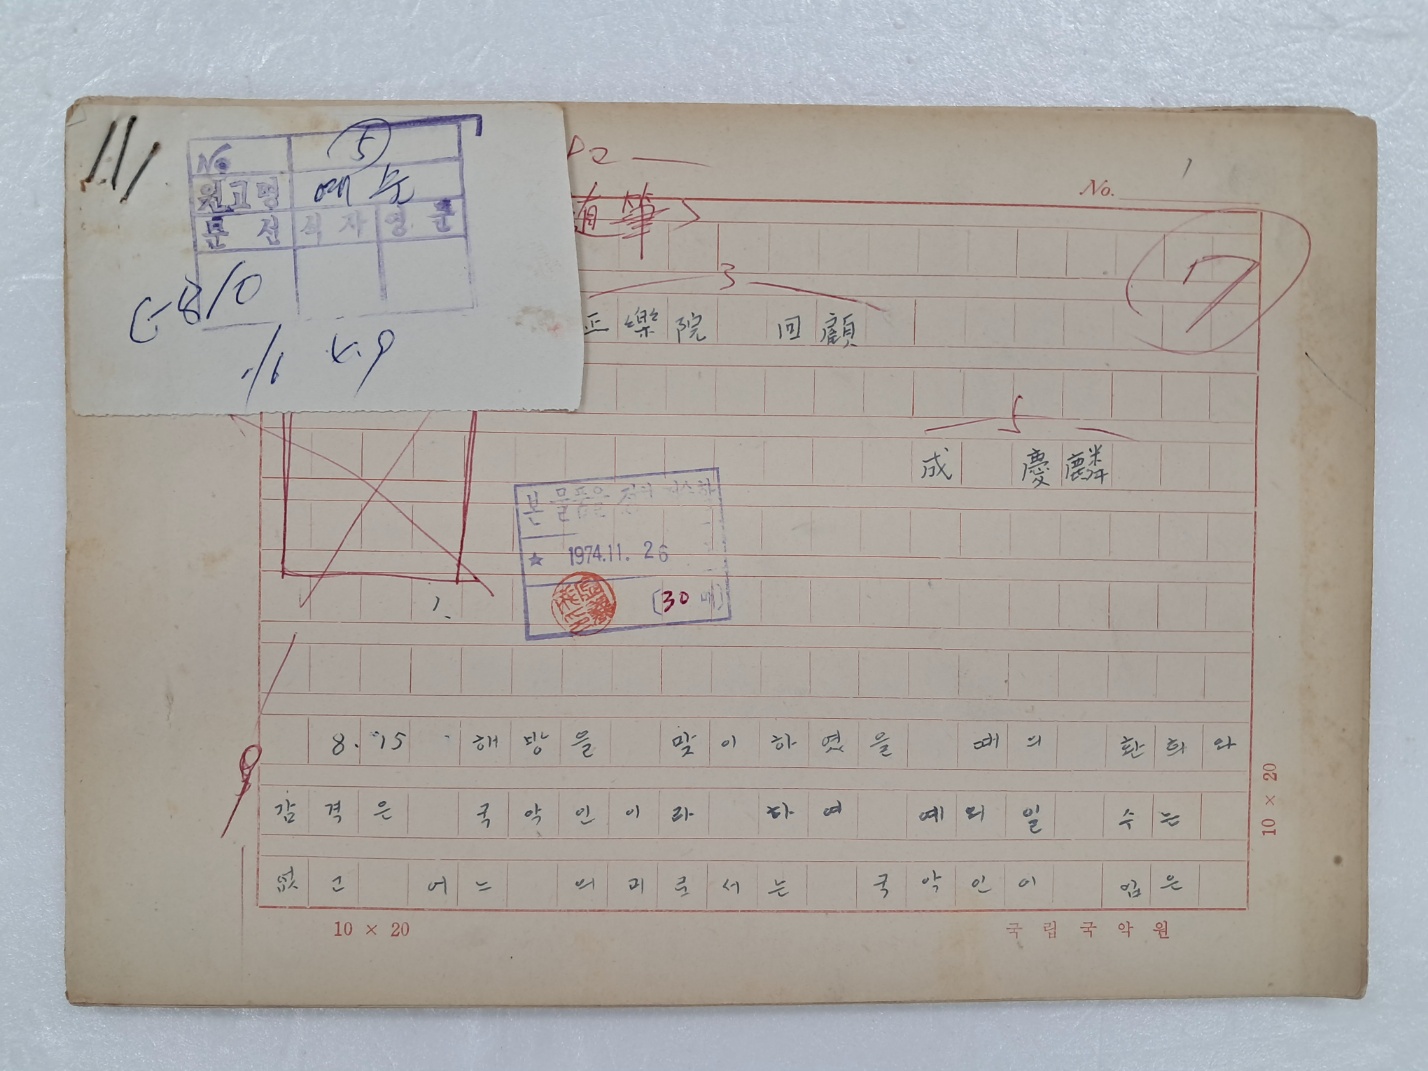 No.
⑤
원고명
예술
문선
식자
영문
11/6
No.
1
随筆
7
3
正樂院 回顧
5
成 慶麟
본 물품을
★ 1974.11. 26
(30매)
8. 15 해방을 맞이하였을 때의 환희와
감격은 국악인이라 하여 예외일 수는
없고 어느 의미로서는 국악인이 입은
10 × 20
10 × 20
국립국악원